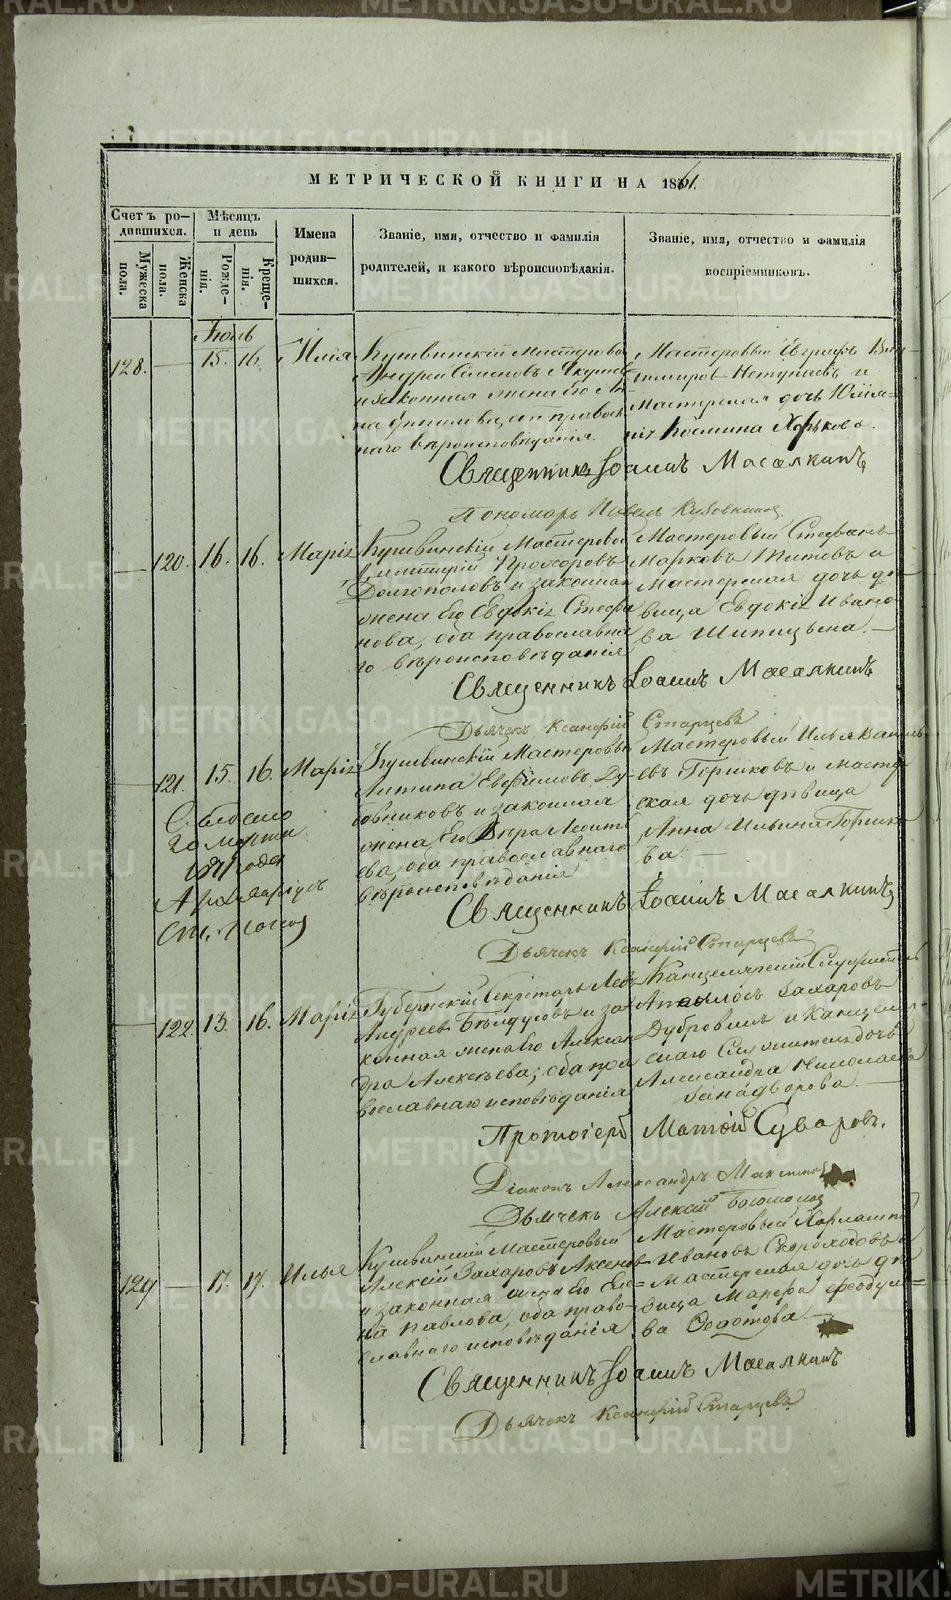 МЕТРИЧЕСКОЙ КНИГИ НА 1861.
Счетъ ро-
дившихся.
Мѣсяцъ
и день
Имена
родив-
шихся.
Званіе, имя, отчество и фамилія
родителей, и какого вѣроисповѣдакія.
Званіе, имя, отчество и фамилія
воспріемниковъ.
Мужеска
пола.
Женска
пола.
Рожде-
нія.
Креще-
нія.
Іюль
128. — 15. 16. Илія
Кушвинскій Мастеровой
Андрей Семеновъ
и законная жена его Ан-
на православ-
наго вѣроисповѣданія
Мастеровый Евграфъ Влад-
имиров и
Мастерская дочь Юлія-
нія Косьмина Харькова.
Священникъ Іоаннъ Масалкинъ
Пономарь Павелъ
— 120. 16. 16. Марія
Кушвинскій Мастеровой
Димитрій Прохоровъ
Долгополовъ и законная
жена его Евдокія Стефа
нова, оба православна
го вѣроисповѣданія
Мастеровый Стефанъ
Марковъ Титовъ и
Мастерская дочь дѣ-
вица Евдокія Ивано-
ва Шипицына. —
Священникъ Іоаннъ Масалкинъ
Дьячекъ Ксенофій Старцевъ
— 121. 15. 16. Марія
Кушвинскій Мастеровый
Антипа Евфимовъ Ду-
бовниковъ и законная
жена Его Вѣра Леонть
ева, оба православнаго
вѣроисповѣданія
Мастеровый Илья Василь
евъ Горшковъ и масте
рская дочь дѣвица
Анна Ильина Горшко
ва. —
20 марта
года
Священникъ Іоаннъ Масалкинъ
Дьячекъ Ксенофій Старцевъ
— 122. 13. 16. Марія
Губернскій Секретарь Левъ
Андреевъ Бѣлоусовъ и за
конная жена его Алексан
дра Алексѣева; оба пра
вославнаго исповѣданія
Канцелярскій Служитель
Аполлосъ Захаровъ
Дубровинъ и Канцеляр
скаго Служителя дочь
Александра Николаева
Занадворова —
Протоіерей Матѳій Суваровъ.
Діаконъ Александръ
Дьячекъ Алексій Богомолов
129 — 17. 17. Илья
Кушвинскій Мастеровый
Алексій Захаровъ Аксенов
и законная жена Его
на Павлова, оба право-
славнаго исповѣданія
Мастеровый Харлампій
Ивановъ Скороходовъ и
Мастерская дочь дѣ-
вица Ѳеодул-
ва Ѳедотова —
Священникъ Іоаннъ Масалкинъ
Дьячекъ Ксенофій Старцевъ
METRIKI.GASO-URAL.RU